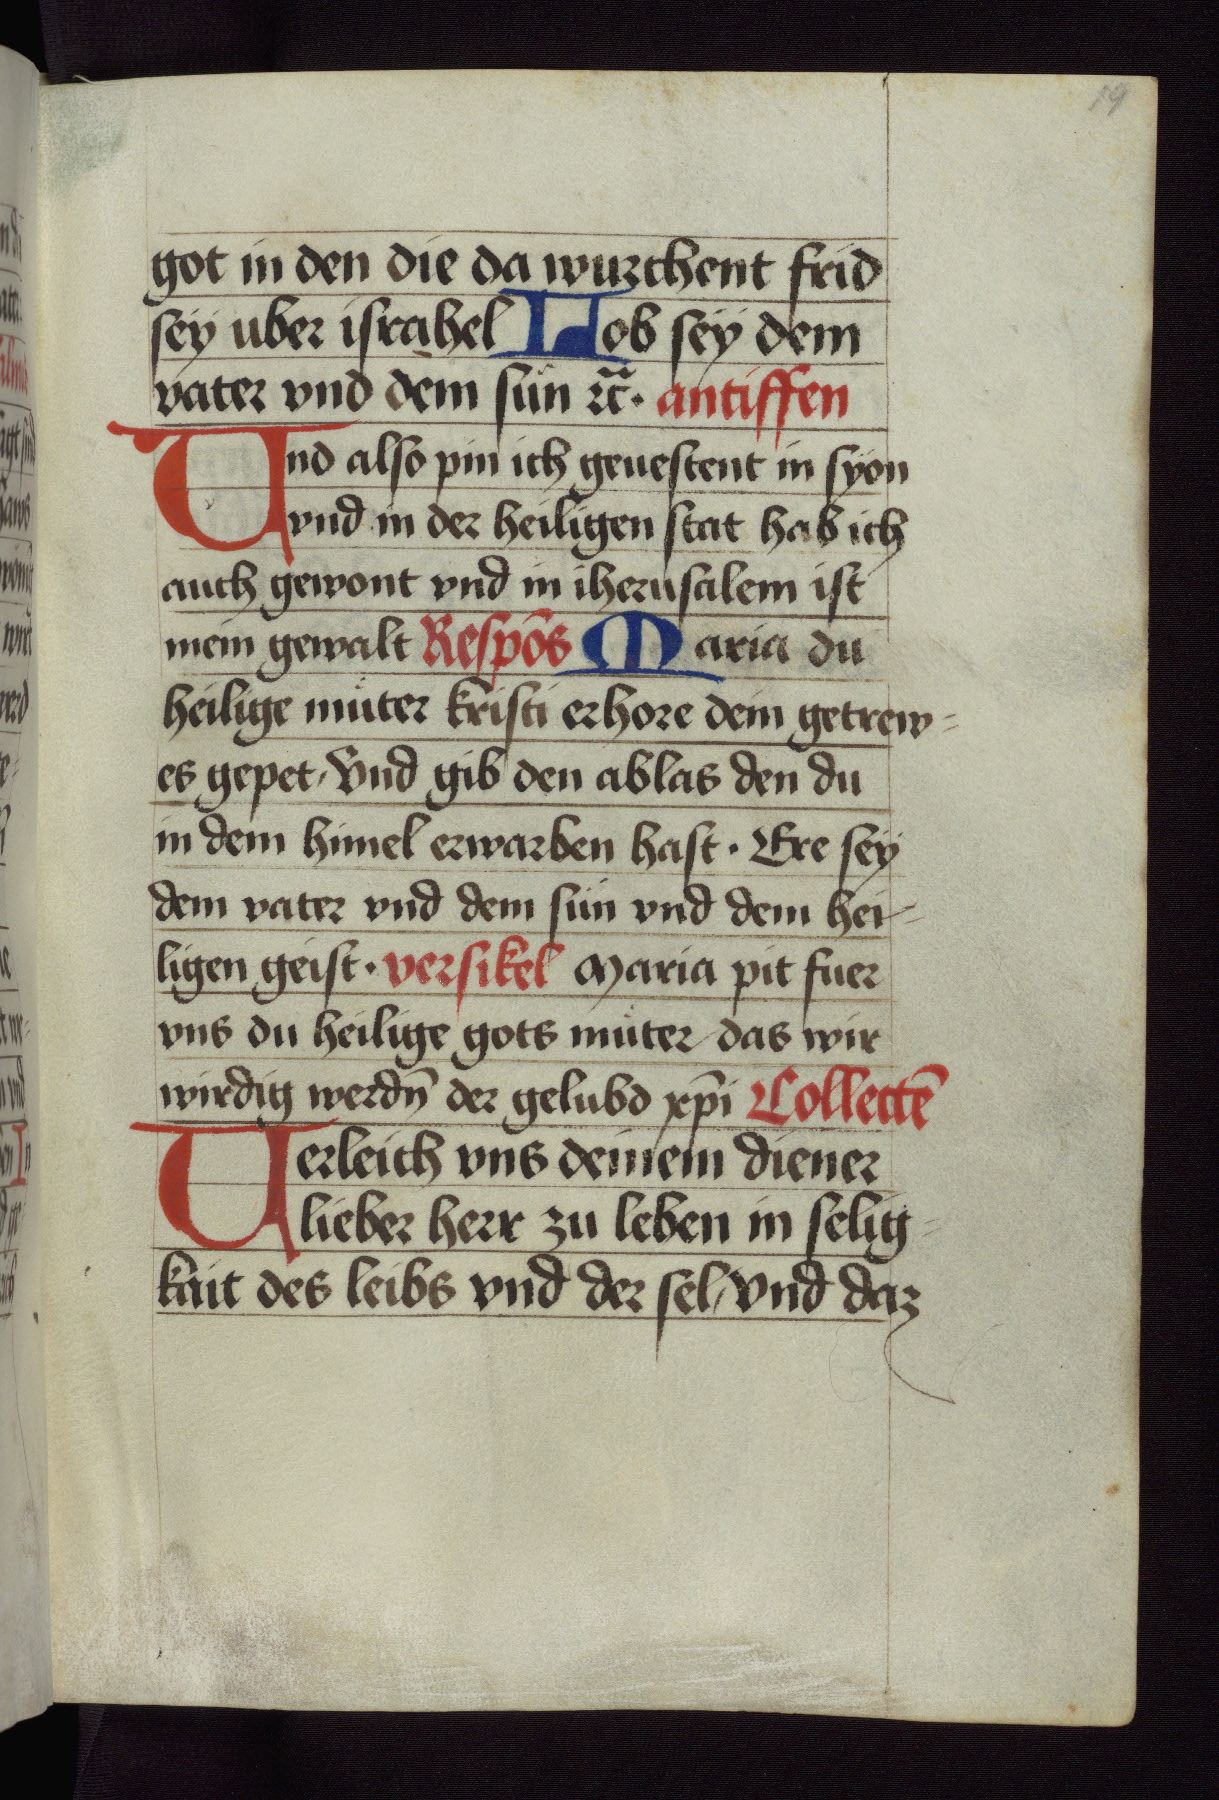 19
got in den die da wurchent frid
sey uber israhel Lob sey dem
vater vnd dem sun rc̄. antiffen
Und also pin ich geuestent in syon
vnd in der heiligen stat hab ich
auch gewont vnd in iherusalem ist
mein gewalt Respōs Maria du
heilige můter kristi erhore dein getrew=
es gepet, Vnd gib den ablas den du
in dem himel erwarben hast. Ere sey
dem vater vnd dem sun vnd dem hei-
ligen geist. versikel Maria pit fuer
vns du heilige gots můter das wir
wirdig werdn̄ der gelubd xp̄i Collectē
Uerleich vns deinem diener
lieber herr zu leben in selig=
kait des leibs vnd der sel, Vnd daz